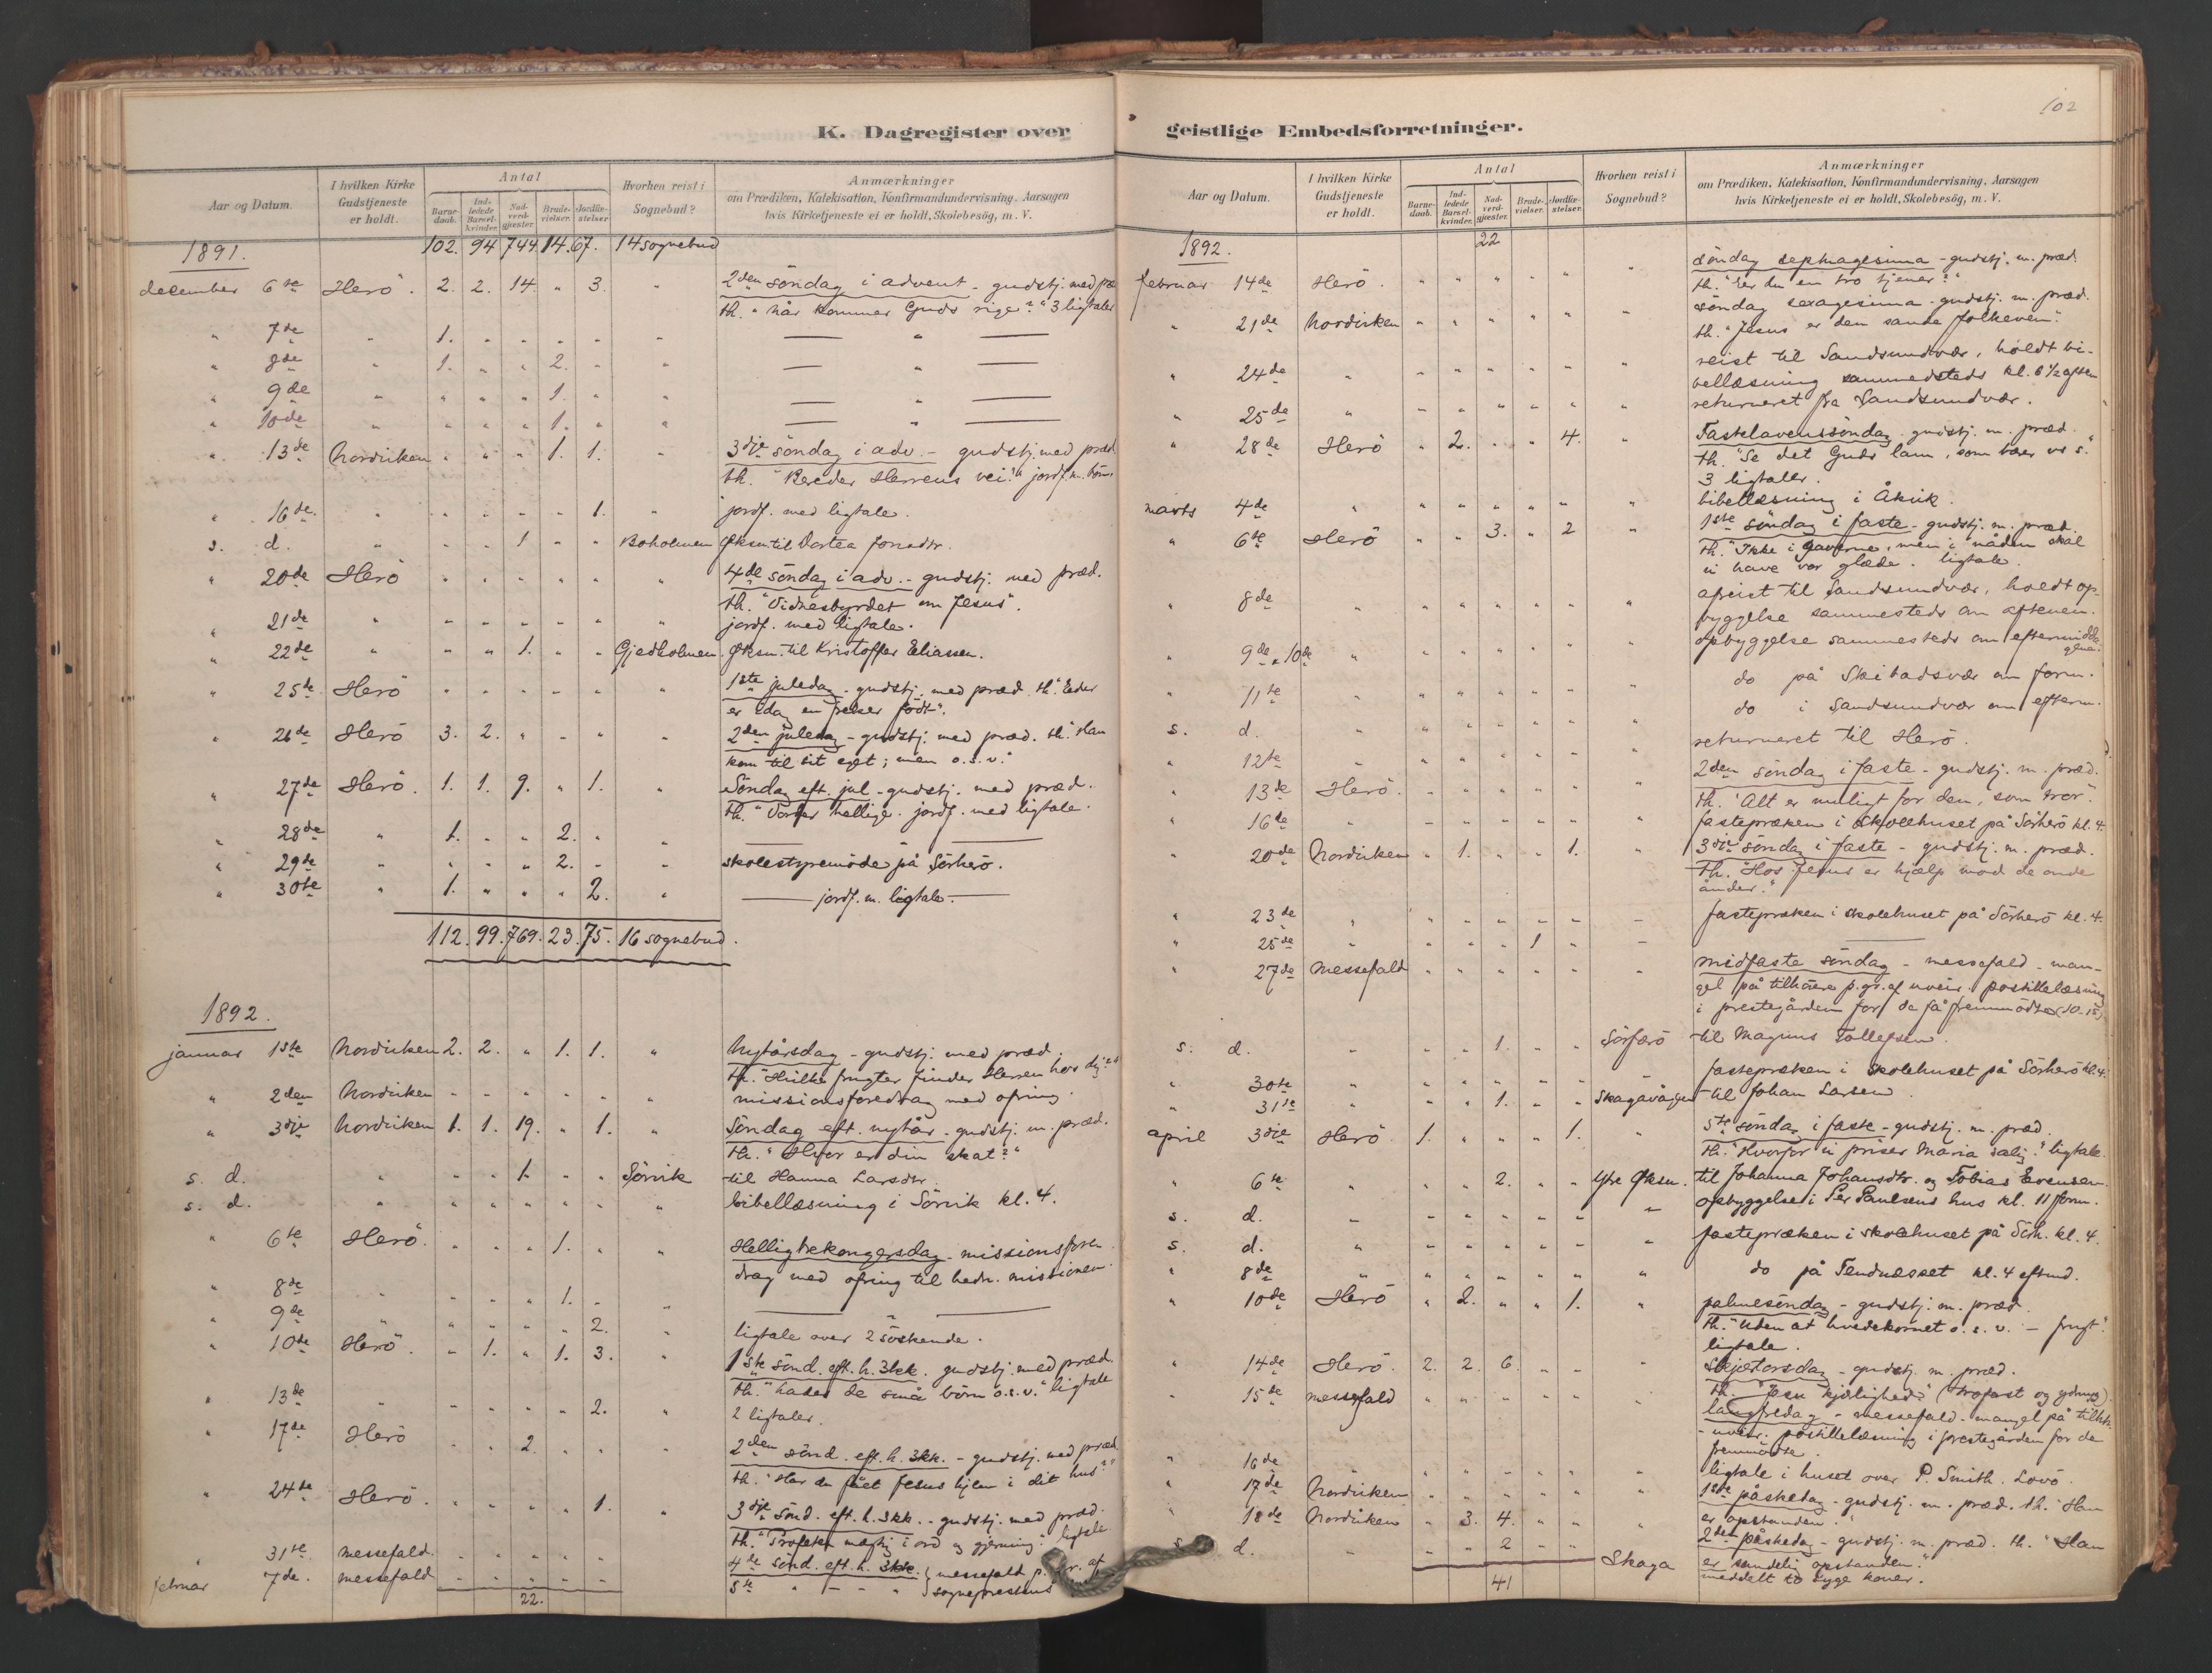 102
K. Dagregister over
Aar og Datum.
I hvilken Kirke Gudstjeneste er holdt.
Antal
Barne- daab.
Ind- ledede Barsel- kvinder.
Nad- verd- gjæster.
Brude- vielser.
Jordfæ- stelser.
Hvorhen reist i Sognebud?
Anmærkninger
om Prædiken, Katekisation, Konfirmandundervisning, Aarsagen
hvis Kirketjeneste ei er holdt, Skolebesög, m. V.
1891. 102. 94 744. 14. 67. 14 sognebud
december 6te Herö. 2. 2. 14. " 3. " 2den söndag i advent - gudstj. med
th. "når kommer Guds rige?" 3 ligtaler
" 7de " 1. " " " " " — " —
" 8de " 1. " " 2. " " — " —
" 9de " " " " 1. " " — " —
" 10de " " " " 1. " " — " —
" 13de Nordviken " " " 1. 1. " 3dje söndag i adv. - gudstj. med præd
th. "Bereder Herrens vei!" jordf. m.
" 16de " " " " " 1. " jordf. med ligtale.
s. d. " " " 1 " " Boholmen Øksn. til Dortea Jonsdtr.
" 20de Herö " " " " " " 4de söndag i adv. - gudstj. med præd.
th. "Vidnesbyrdet om Jesus".
" 21de " " " " " " " jordf. med ligtale.
" 22de " " " 1. " " Gjedholmen Øksn. til Kristoffer Eliassen.
" 25te Herö " " " " " " 1ste juledag - gudstj. med præd. th. "Eder
er idag en frelser född".
" 26de Herö 3. 2. " " " " 2den juledag - gudstj. med præd. th. "Han
kom til sit eget; men o.s.v."
" 27de Herö. 1. 1. 9. " 1. " Söndag eft. jul - gudstj. med præd.
th. "Vorder hellige. jordf. med ligtale.
" 28de " 1. " " 2. " " — " —
" 29de " " " " 2. " " skolestyremöde på Sörherö.
" 30te " 1. " " " 2. " — jordf. m. ligtale. —
112. 99. 769. 23. 75. 16 sognebud.
1892.
januar 1ste Nordviken 2. 2. " 1. 1. " Nytårsdag - gudstj. med præd.
th. "Hvilke frugter finder Herren hos dig?"
" 2den Nordviken " " " " " " missionsforedrag med ofring.
" 3dje Nordviken 1. 1. 19. " 1. " Söndag eft. nytår - gudstj. m. præd.
th. "Hvor er din skat?"
s. d. " " " 1. " " Sörvik til Hanna Larsdtr.
s. d. " " " " " " " bibellæsning i Sörvik kl. 4.
" 6te Herö. " " " 1. " " Helligtrekongersdag - missionsfore
drag med ofring til hedn. missionen.
" 8de " " " " 1. " " — " —
" 9de " " " " " 2. " ligtale over 2 söskende.
" 10de Herö. " 1. " 1. 3. " 1ste sönd. eft. h. 3kk. gudstj. med præd.
th. "Lader de små börn o.s.v." ligtale
" 13de " " " " " 2. " 2 ligtaler.
" 17de Herö " " 2. " " " 2den sönd. eft. h. 3kk. - gudstj. med præd
th. "Har du fået Jesus hjem i dit hus?"
" 24de Herö. " " " " 1. " 3dje sönd. eft. h. 3kk. - gudstj. med præd.
th. "Profeten mægtig i ord og gjerning." ligtale
" 31te messefald. " " " " " 4de sönd. eft. h. 3kk. } messefald p. gr. af
februar 7de. messefald " " " " " 5te " - - " } sogneprestens
22.
geistlige Embedsforretninger.
Aar og Datum.
I hvilken Kirke Gudstjeneste er holdt.
Antal
Barne- daab.
Ind- ledede Barsel- kvinder.
Nad- verd- gjæster.
Brude- vielser.
Jordfæ- stelser.
Hvorhen reist i Sognebud?
Anmærkninger
om Prædiken, Katekisation, Konfirmandundervisning, Aarsagen
hvis Kirketjeneste ei er holdt, Skolebesög, m. V.
1892. 22
februar 14de Herö. " " " " " " söndag septuagesima - gudstj. m. præd.
th. "Er du en tro tjener?"
" 21de Nordviken " " " " " " söndag sexagesima - gudstj. m. præd.
th. "Jesus er den sande folkeven".
" 24de " " " " " " " reist til Sandsundvær, holdt bi-
bellæsning sammesteds kl. 6 1/2 aften
" 25de " " " " " " " returneret fra Sandsundvær.
" 28de Herö " 2. " " 4. " Fastelavenssöndag - gudstj. m. præd.
th. "Se det Guds lam, som bærer vs s."
3 ligtaler.
marts 4de " " " " " " " bibellæsning i Åkvik.
" 6te Herö " " 3. " 2 " 1ste söndag i faste - gudstj. m. præd.
th. "Ikke i gaverne, men i nåden skal
vi have vor glæde. ligtale.
" 8de " " " " " " " afreist til Sandsundvær, holdt op-
byggelse sammesteds om aftenen.
" 9de & 10de " " " " " " " opbyggelse sammesteds om eftermidda-
gene.
" 11te " " " " " " do på Skibadsvær om form.
s. d. " " " " " " do i Sandsundvær om efterm.
" 12te " " " " " " " returneret til Herö.
" 13de Herö. " " " " " " 2den söndag i faste - gudstj. m. præd.
th. "Alt er muligt for den, som tror".
" 16de " " " " " " fastepræken i skolehuset på Sörherö kl. 4.
" 20de Nordviken " 1. " " 1. " 3dje söndag i faste - gudstj. m. præd.
th. "Hos Jesus er hjælp mod de onde
ånder."
" 23de " " " " " " - fastepræken i skolehuset på Sörherö kl. 4.
" 25de " " " " 1 " - —
" 27de messefald " " " " " " midfaste söndag - messefald - man-
gel på tilhörere p. gr. af uveir. postillelæsning
i prestegården for de få fremmödte (10-15)
s. d. " " " 1. " " Sörfærö til Magnus Tollefsen.
" 30te " " " " " " fastepræken i skolehuset på Sörherö kl. 4.
" 31te " " " 1. " " Skagavågen til Johan Larsen.
april 3dje Herö. 1. " " " 1. " 5te söndag i faste - gudstj. m. præd.
th. "Hvorfor vi priser Maria salig." ligtale.
" 6te " " " 2. " " Ytre Øksn. til Johanna Johansdtr. og Tobias Evensen.
s. d. " " " " " " " opbyggelse i Per Paulsens hus kl. 11 form.
s. d. " " " " " " " fastepræken i skolehuset på Sörh. kl. 4.
" 8de " " " " " " " do på Tendnæsset kl. 4 eftmd.
" 10de Herö " 2. " " 1. " palmesöndag - gudstj. m. præd.
th. "Uden at hvedekornet o.s.v. - frugt."
ligtale.
" 14de Herö. 2. 2. 6. " " Skjærtorsdag - gudstj. m. præd.
th. "Jesu kjærlighed" (trofast og ydmyg)
" 15de messefald " " " " " " langfredag - messefald - mangel på
- uveir. postillelæsning i prestegården for de
fremmödte.
" 16de " " " " " ligtale i huset over P. Smith. Lovö.
" 17de Nordviken " " " " " " 1ste påskedag - gudstj. m. præd. th. "Han
er opstanden."
" 18de Nordviken " 3. 4. " " " 2den påskedag - gudstj. m. præd. th. "Han
er sandelig opstanden."
s. d. " " " 2 " " Skaga meddelt to syge koner.
41